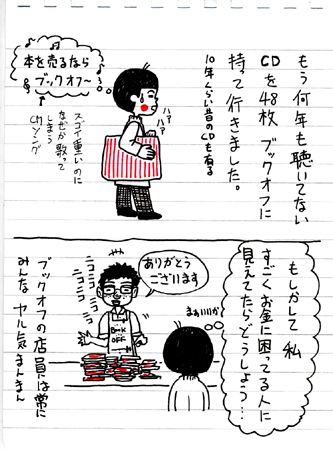 もう何年も聴いてない
CDを48枚 ブックオフに
持って行きました。
10年くらい昔のCDも有る
ハァ
ハァ
本を売るなら
ブックオフ〜
スゴイ重いのに
なぜか歌って
しまう
CMソング
もしかして 私
すごくお金に困ってる人に
見えてたらどうしよう…
まぁいいか
ありがとう
ございます
ニコニコ
ニコニコ
BOOK
OFF
ブックオフの店員は常に
みんな ヤル気まんまん